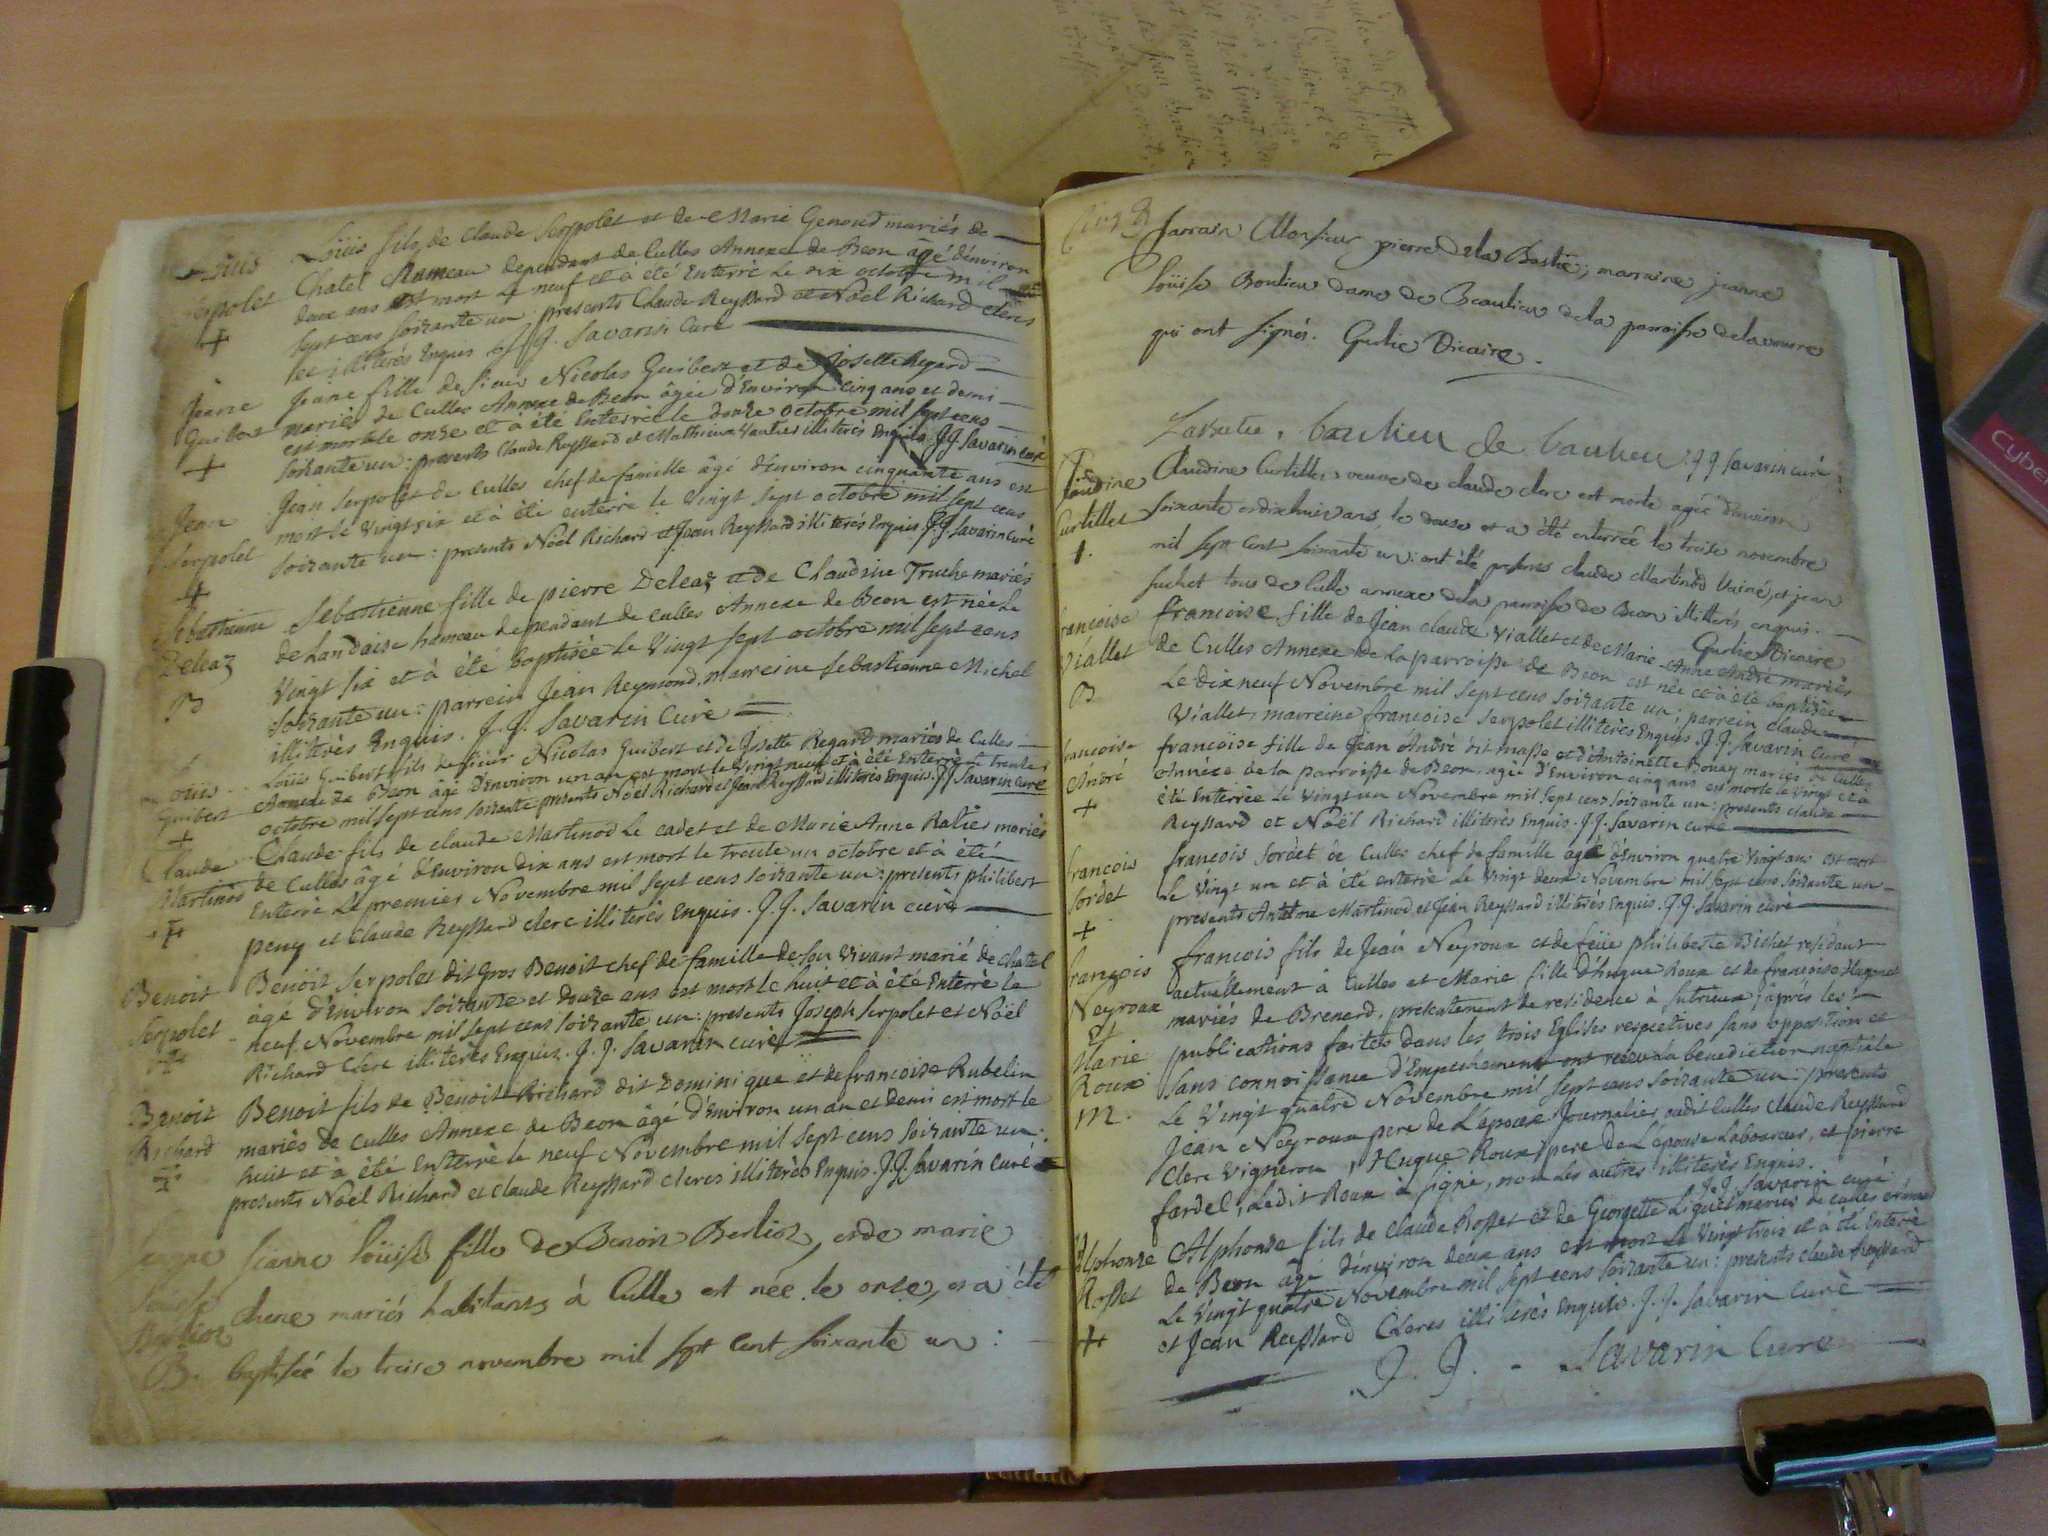 Louis
Serpolet
+
Loüis fils de Claude Serpolet et de Marie Genoud mariés de
Chatel Hameau dependant de Culles Annexe de Beon âgé d'environ
deux ans est mort le neuf et à été Enterré Le dix octobre mil
sept cens soixante un : presents Claude Reyssard et Noël Richard clercs
les illiterés Enquis J.J. Savarin Curé
Jeane
Guibert
+
Jeane fille de sieur Nicolas Guibert et de Josette Regard
mariés de Culles Annexe de Beon âgée d'Environ cinq ans et demi
est morte le onze et à été Enterrée le douze octobre mil sept cens
soixante un : presents Claude Reyssard et Mathieu Vautier illiterés Enquis J.J Savarin curé
Jean
Serpolet
+
Jean Serpolet de Culles chef de famille âgé d'Environ cinquante ans est
mort le vingt six et à été enterré le Vingt sept octobre mil sept cens
soixante un : presents Noël Richard et Jean Reyssard illiterés Enquis J.J Savarin curé
Sebastienne
Deleaz
B
Sebastienne fille de pierre Deleaz et de Claudine Truche mariés
de Landaise hameau dependant de Culles Annexe de Beon est née Le
Vingt six et à été baptisée le Vingt sept octobre mil sept cens
soixante un : parrein Jean Reymond, marreine Sebastienne Michel
illiterés Enquis. J.J. Savarin Curé
Louis
Guibert
+
Loüis Guibert fils de sieur Nicolas Guibert et de Josette Regard mariés de Culles
Annexe de Beon âgé d'Environ un an est mort le Vingt neuf et à été Enterré le trente
octobre mil sept cens soixante presents Noël Richard et Jean Reyssard illiterés Enquis. J.J Savarin curé
Claude
Martinod
+
Claude fils de claude Martinod Le cadet et de Marie Anne Ratier mariés
de Culles âgé d'Environ dix ans est mort le trente un octobre et à été
Enterré Le premier Novembre mil sept cens soixante un : presents philibert
peny et Claude Reyssard clerc illiterés Enquis. J.J. Savarin curé
Benoit
Serpolet
+
Benoit Serpolet dit Gros Benoit chef de famille de son Vivant marié de Chatel
âgé d'Environ soixante et douze ans est mort le huit et à été Enterré le
neuf Novembre mil sept cens soixante un : presents Joseph Serpolet et Noël
Richard Clerc illiterés Enquis. J.J. Savarin curé
Benoit
Richard
+
Benoit fils de Benoit Richard dit Dominique et de francoise Rubelin
mariés de Culles Annexe de Beon âgé d'Environ un an et demi est mort le
huit et à été Enterré le neuf Novembre mil sept cens soixante un :
presents Noël Richard et Claude Reyssard clercs illiterés Enquis. J.J. Savarin curé
Jeanne
Loüise
Berlioz
B.
Jeanne loüise fille de Benoit Berlioz, et de marie
chene mariés habitants à Culle est née le onze, et a été
baptisée le treise novembre mil sept cent soixante un :
parrain Monsieur pierre de la Bastie ; marraine jeanne
loüise Boulieu dame de Beaulieu de la parroisse de lavoure
qui ont signés. Gurlie Vicaire.
baulieu de baulieu J.J Savarin curé
Claudine
Curtillet
+.
Claudine Curtillet veuve de claude clerc est morte agée d'environ
soixante et dix huit ans, le douse et a été enterrée le treise novembre
mil sept cent soixante un : ont été presens claude Martinod l'ainé, et jean
suchet tous de Culle annexe de la parroisse de Beon illitterés enquis.
Gurlie Vicaire
francoise
Viallet
B
francoise fille de Jean claude Viallet et de Marie-Anne André mariés
de Culles Annexe de La parroisse de Beon est née et à été baptisée
Le dix neuf Novembre mil sept cens soixante un ; parrein claude
Viallet, marreine francoise Serpolet illiterés Enquis. J.J. Savarin curé
francoise
André
+
francoïse fille de Jean André dit masse et d'Antoinette Bonay mariés de Culles
Annéxe de la parroisse de Beon, agée d'Environ cinq ans est morte le vingt et à
été Enterrée Le Vingt un Novembre mil sept cens soixante un : presents claude
Reyssard et Noël Richard illiterés Enquis. J.J. Savarin curé
francois
Sordet
+
francois Sordet de Culles chef de famille agé d'Environ quatre Vingt ans est mort
le Vingt un et à été enterré Le Vingt deux Novembre mil sept cens soixante un
presents Antelme Martinod et Jean Reyssard illiterés Enquis. J.J. Savarin curé
francois
Neyroux
Et
Marie
Roux
M.
francois fils de Jean Neyroux et de feüe philiberte Bichet residant
actuellement à Culles et Marie fille d'hugue Roux et de francoise Hugonet
mariés de Brenerd, presentement de residence à Sutrieux ; après les
publications faites dans les trois Eglises respectives sans opposition et
sans connoissance d'Empechement ont receu la benediction nuptiale
Le Vingt quatre Novembre mil sept cens soixante un : presents
Jean Neyroux pere de L'époux Journalier audit Culles Claude Reyssard
Clerc Vigneron, Hugue Roux pere de L'épouse Laboureur, et pierre
fardel, Ledit Roux à signé, non Les autres illiterés Enquis.
J.J. Savarin curé
Alphonse
Rosset
+
Alphonse fils de Claude Rosset et de Georgette Liquet mariés de Culles
de Beon âgé d'environ deux ans est mort Le Vingt trois et à été Enterré
Le Vingt quatre Novembre mil sept cens soixante un : presents claude Reyssard
et Jean Reyssard Clercs illiterés Enquis. J.J. Savarin Curé
J. J. Savarin Curé
Cyber